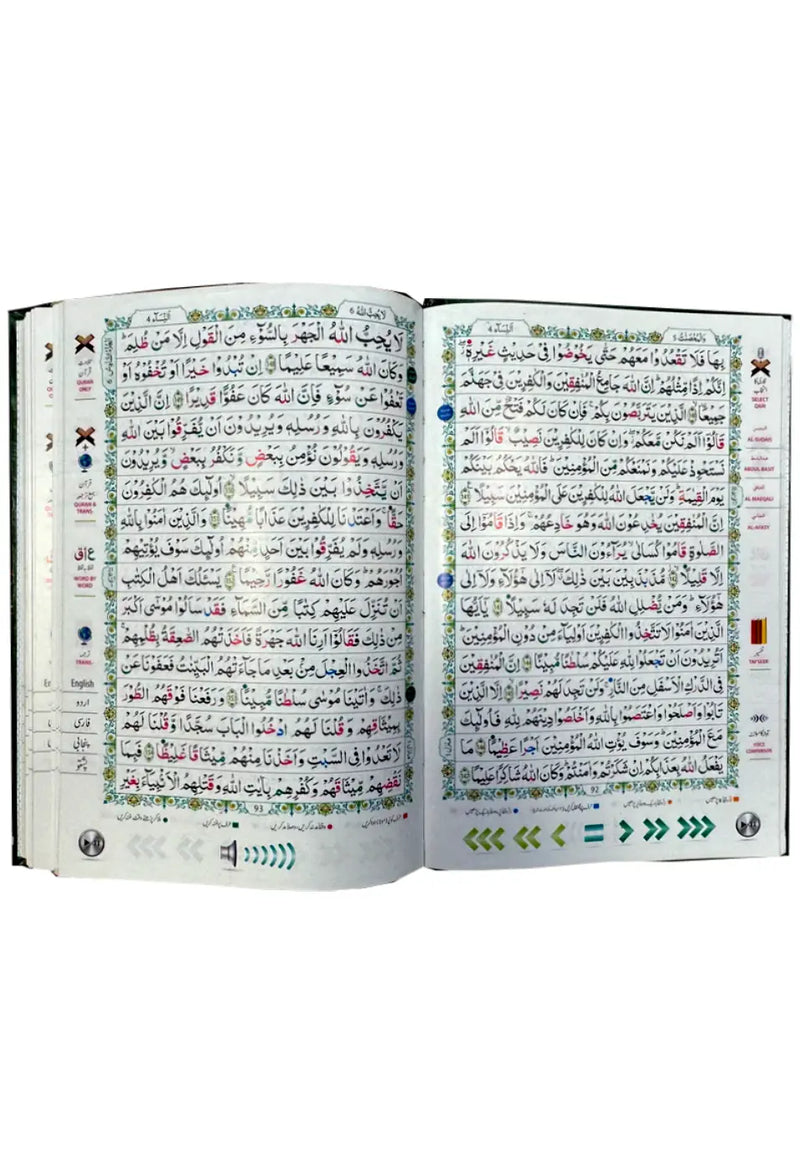 وَالْمُحْصَنٰتُ 5
اَلنِّسَآء 4
بِهَا فَلَا تَقْعُدُوْا مَعَهُمْ حَتّٰى يَخُوْضُوْا فِيْ حَدِيْثٍ غَيْرِهٖٓ
اِنَّكُمْ اِذًا مِّثْلُهُمْ اِنَّ اللّٰهَ جَامِعُ الْمُنٰفِقِيْنَ وَالْكٰفِرِيْنَ فِيْ جَهَنَّمَ
جَمِيْعًا الَّذِيْنَ يَتَرَبَّصُوْنَ بِكُمْ فَاِنْ كَانَ لَكُمْ فَتْحٌ مِّنَ اللّٰهِ
قَالُوْٓا اَلَمْ نَكُنْ مَّعَكُمْ وَاِنْ كَانَ لِلْكٰفِرِيْنَ نَصِيْبٌ قَالُوْٓا اَلَمْ
نَسْتَحْوِذْ عَلَيْكُمْ وَنَمْنَعْكُمْ مِّنَ الْمُؤْمِنِيْنَ فَاللّٰهُ يَحْكُمُ بَيْنَكُمْ
يَوْمَ الْقِيٰمَةِ وَلَنْ يَّجْعَلَ اللّٰهُ لِلْكٰفِرِيْنَ عَلَى الْمُؤْمِنِيْنَ سَبِيْلًا
اِنَّ الْمُنٰفِقِيْنَ يُخٰدِعُوْنَ اللّٰهَ وَهُوَ خَادِعُهُمْ وَاِذَا قَامُوْٓا اِلَى
الصَّلٰوةِ قَامُوْا كُسَالٰى يُرَآءُوْنَ النَّاسَ وَلَا يَذْكُرُوْنَ اللّٰهَ
اِلَّا قَلِيْلًا مُّذَبْذَبِيْنَ بَيْنَ ذٰلِكَ لَآ اِلٰى هٰٓؤُلَآءِ وَلَآ اِلٰى
هٰٓؤُلَآءِ وَمَنْ يُّضْلِلِ اللّٰهُ فَلَنْ تَجِدَ لَهٗ سَبِيْلًا يٰٓاَيُّهَا
الَّذِيْنَ اٰمَنُوْا لَا تَتَّخِذُوا الْكٰفِرِيْنَ اَوْلِيَآءَ مِنْ دُوْنِ الْمُؤْمِنِيْنَ
اَتُرِيْدُوْنَ اَنْ تَجْعَلُوْا لِلّٰهِ عَلَيْكُمْ سُلْطٰنًا مُّبِيْنًا اِنَّ الْمُنٰفِقِيْنَ
فِي الدَّرْكِ الْاَسْفَلِ مِنَ النَّارِ وَلَنْ تَجِدَ لَهُمْ نَصِيْرًا اِلَّا الَّذِيْنَ
تَابُوْا وَاَصْلَحُوْا وَاعْتَصَمُوْا بِاللّٰهِ وَاَخْلَصُوْا دِيْنَهُمْ لِلّٰهِ فَاُولٰٓئِكَ
مَعَ الْمُؤْمِنِيْنَ وَسَوْفَ يُؤْتِ اللّٰهُ الْمُؤْمِنِيْنَ اَجْرًا عَظِيْمًا مَا
يَفْعَلُ اللّٰهُ بِعَذَابِكُمْ اِنْ شَكَرْتُمْ وَاٰمَنْتُمْ وَكَانَ اللّٰهُ شَاكِرًا عَلِيْمًا
92
SELECT
QARI
AL-SUDAIS
ABDUL BASIT
AL-MAEQALI
AL-AFASY
TAFSEER
VOICE
COMPARISON
لَا يُحِبُّ اللّٰهُ 6
اَلنِّسَآء 4
لَا يُحِبُّ اللّٰهُ الْجَهْرَ بِالسُّوْٓءِ مِنَ الْقَوْلِ اِلَّا مَنْ ظُلِمَ
وَكَانَ اللّٰهُ سَمِيْعًا عَلِيْمًا اِنْ تُبْدُوْا خَيْرًا اَوْ تُخْفُوْهُ اَوْ
تَعْفُوْا عَنْ سُوْٓءٍ فَاِنَّ اللّٰهَ كَانَ عَفُوًّا قَدِيْرًا اِنَّ الَّذِيْنَ
يَكْفُرُوْنَ بِاللّٰهِ وَرُسُلِهٖ وَيُرِيْدُوْنَ اَنْ يُّفَرِّقُوْا بَيْنَ اللّٰهِ
وَرُسُلِهٖ وَيَقُوْلُوْنَ نُؤْمِنُ بِبَعْضٍ وَّنَكْفُرُ بِبَعْضٍ وَّيُرِيْدُوْنَ
اَنْ يَّتَّخِذُوْا بَيْنَ ذٰلِكَ سَبِيْلًا اُولٰٓئِكَ هُمُ الْكٰفِرُوْنَ
حَقًّا وَاَعْتَدْنَا لِلْكٰفِرِيْنَ عَذَابًا مُّهِيْنًا وَالَّذِيْنَ اٰمَنُوْا بِاللّٰهِ
وَرُسُلِهٖ وَلَمْ يُفَرِّقُوْا بَيْنَ اَحَدٍ مِّنْهُمْ اُولٰٓئِكَ سَوْفَ يُؤْتِيْهِمْ
اُجُوْرَهُمْ وَكَانَ اللّٰهُ غَفُوْرًا رَّحِيْمًا يَسْـَٔلُكَ اَهْلُ الْكِتٰبِ
اَنْ تُنَزِّلَ عَلَيْهِمْ كِتٰبًا مِّنَ السَّمَآءِ فَقَدْ سَاَلُوْا مُوْسٰٓى اَكْبَرَ
مِنْ ذٰلِكَ فَقَالُوْٓا اَرِنَا اللّٰهَ جَهْرَةً فَاَخَذَتْهُمُ الصّٰعِقَةُ بِظُلْمِهِمْ
ثُمَّ اتَّخَذُوا الْعِجْلَ مِنْ بَعْدِ مَا جَآءَتْهُمُ الْبَيِّنٰتُ فَعَفَوْنَا عَنْ
ذٰلِكَ وَاٰتَيْنَا مُوْسٰى سُلْطٰنًا مُّبِيْنًا وَرَفَعْنَا فَوْقَهُمُ الطُّوْرَ
بِمِيْثَاقِهِمْ وَقُلْنَا لَهُمُ ادْخُلُوا الْبَابَ سُجَّدًا وَّقُلْنَا لَهُمْ
لَا تَعْدُوْا فِي السَّبْتِ وَاَخَذْنَا مِنْهُمْ مِّيْثَاقًا غَلِيْظًا فَبِمَا
نَقْضِهِمْ مِّيْثَاقَهُمْ وَكُفْرِهِمْ بِاٰيٰتِ اللّٰهِ وَقَتْلِهِمُ الْاَنْۢبِيَآءَ بِغَيْرِ
93
QURAN
ONLY
QURAN &
TRANS
ع|ق
WORD BY
WORD
TRANS-
English
اردو
فارسی
پنجابی
پشتو